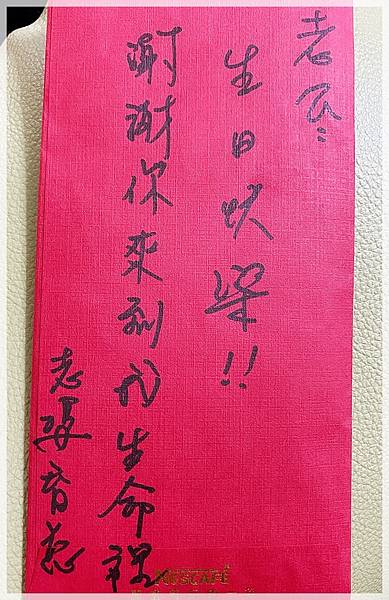 老公:
生日快樂!!
謝謝你來到我生命裡
老婆